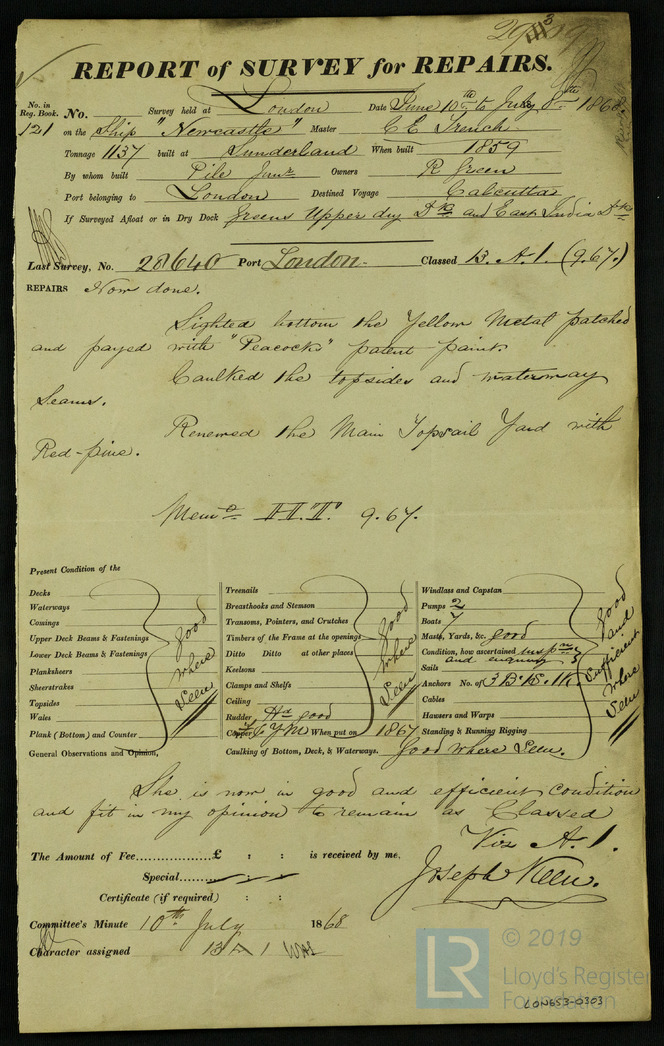 REPORT of SURVEY for REPAIRS.
No. in Reg. Book. No. Survey held at London Date June 10th to July 8th 1868
121 on the Ship "Newcastle" Master C E Trench
Tonnage 1137 built at Sunderland When built 1859
By whom built Pile Junr Owners R Green
Port belonging to London Destined Voyage Calcutta
If Surveyed Afloat or in Dry Dock Greens Upper dry Dk and East India Dk
Last Survey, No. 28640 Port London Classed 13. A.1. (9.67.)
REPAIRS Now done.
Sighted bottom the Yellow Metal patched
and payed with "Peacocks" patent paint.
Caulked the topsides and waterway
Seams.
Renewed the Main Topsail Yard with
Red-pine.
Memo I.I.T. 9.67.
Present Condition of the
Decks
Waterways
Comings
Upper Deck Beams & Fastenings
Lower Deck Beams & Fastenings
Planksheers
Sheerstrakes
Topsides
Wales
Plank (Bottom) and Counter
good where Seen
Treenails
Breasthooks and Stemson
Transoms, Pointers, and Crutches
Timbers of the Frame at the openings
Ditto Ditto at other places
Keelsons
Clamps and Shelfs
Ceiling
Rudder Hd good
Copper YM When put on 1867
good where Seen
Windlass and Capstan
Pumps 2
Boats 7
Masts, Yards, &c. good
Condition, how ascertained inspn
and enquiry
Sails
Anchors No. of 3 B. 1S. 1K.
Cables
Hawsers and Warps
Standing & Running Rigging
good and Sufficient where Seen
General Observations and Opinion, Caulking of Bottom, Deck, & Waterways. Good where Seen.
She is now in good and efficient condition
and fit in my opinion to remain as Classed
Viz A.1.
The Amount of Fee...............£ : : is received by me,
Special......
Joseph Keen.
Certificate (if required) : :
Committee's Minute 10th July 1868
Character assigned 13 A 1
LR © 2019
Lloyd's Register
Foundation
LON653-0303